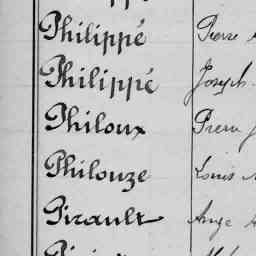 Philippé Pierre
Philippé Joseph
Philoux Pierre
Philouze Louis
Pirault Ange